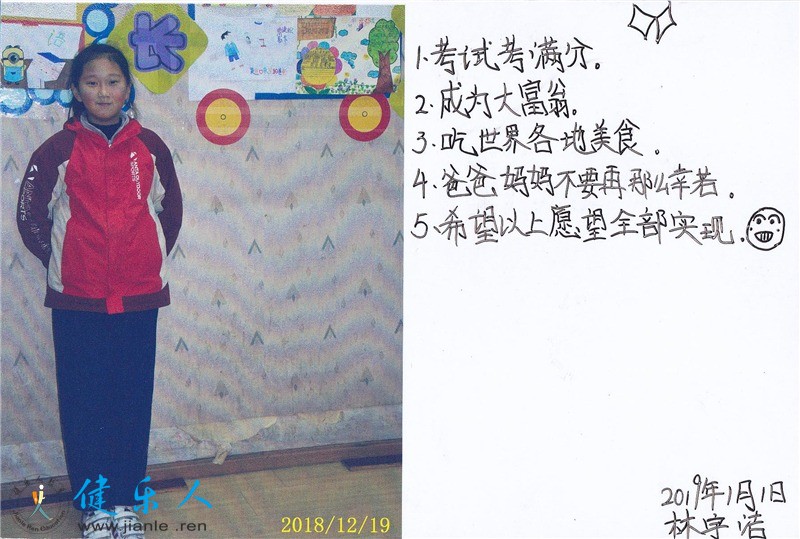 洁
长
1.考试考满分。
2.成为大富翁。
3.吃世界各地美食.
4.爸爸妈妈不要再那么幸若.
5.希望以上愿望全部实现.
2019年1月1日
林字洁
健乐人
www.jianle.ren
2018/12/19